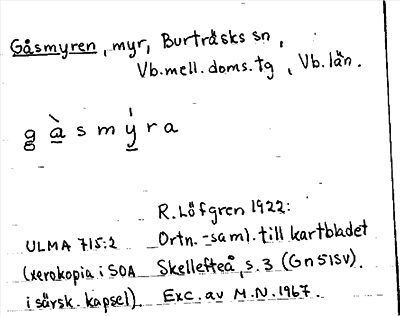 Gåsmyren, myr, Burträsks sn,
Vb.mell.doms.tg, Vb.län.
g å̀ s m ý r a
R.Löfgren 1922:
ULMA 715:2 Ortn.-saml. till kartbladet
(xerokopia i SOA Skellefteå, s.3 (Gn 51SV).
i särsk. kapsel). Exc. av M.N. 1967.